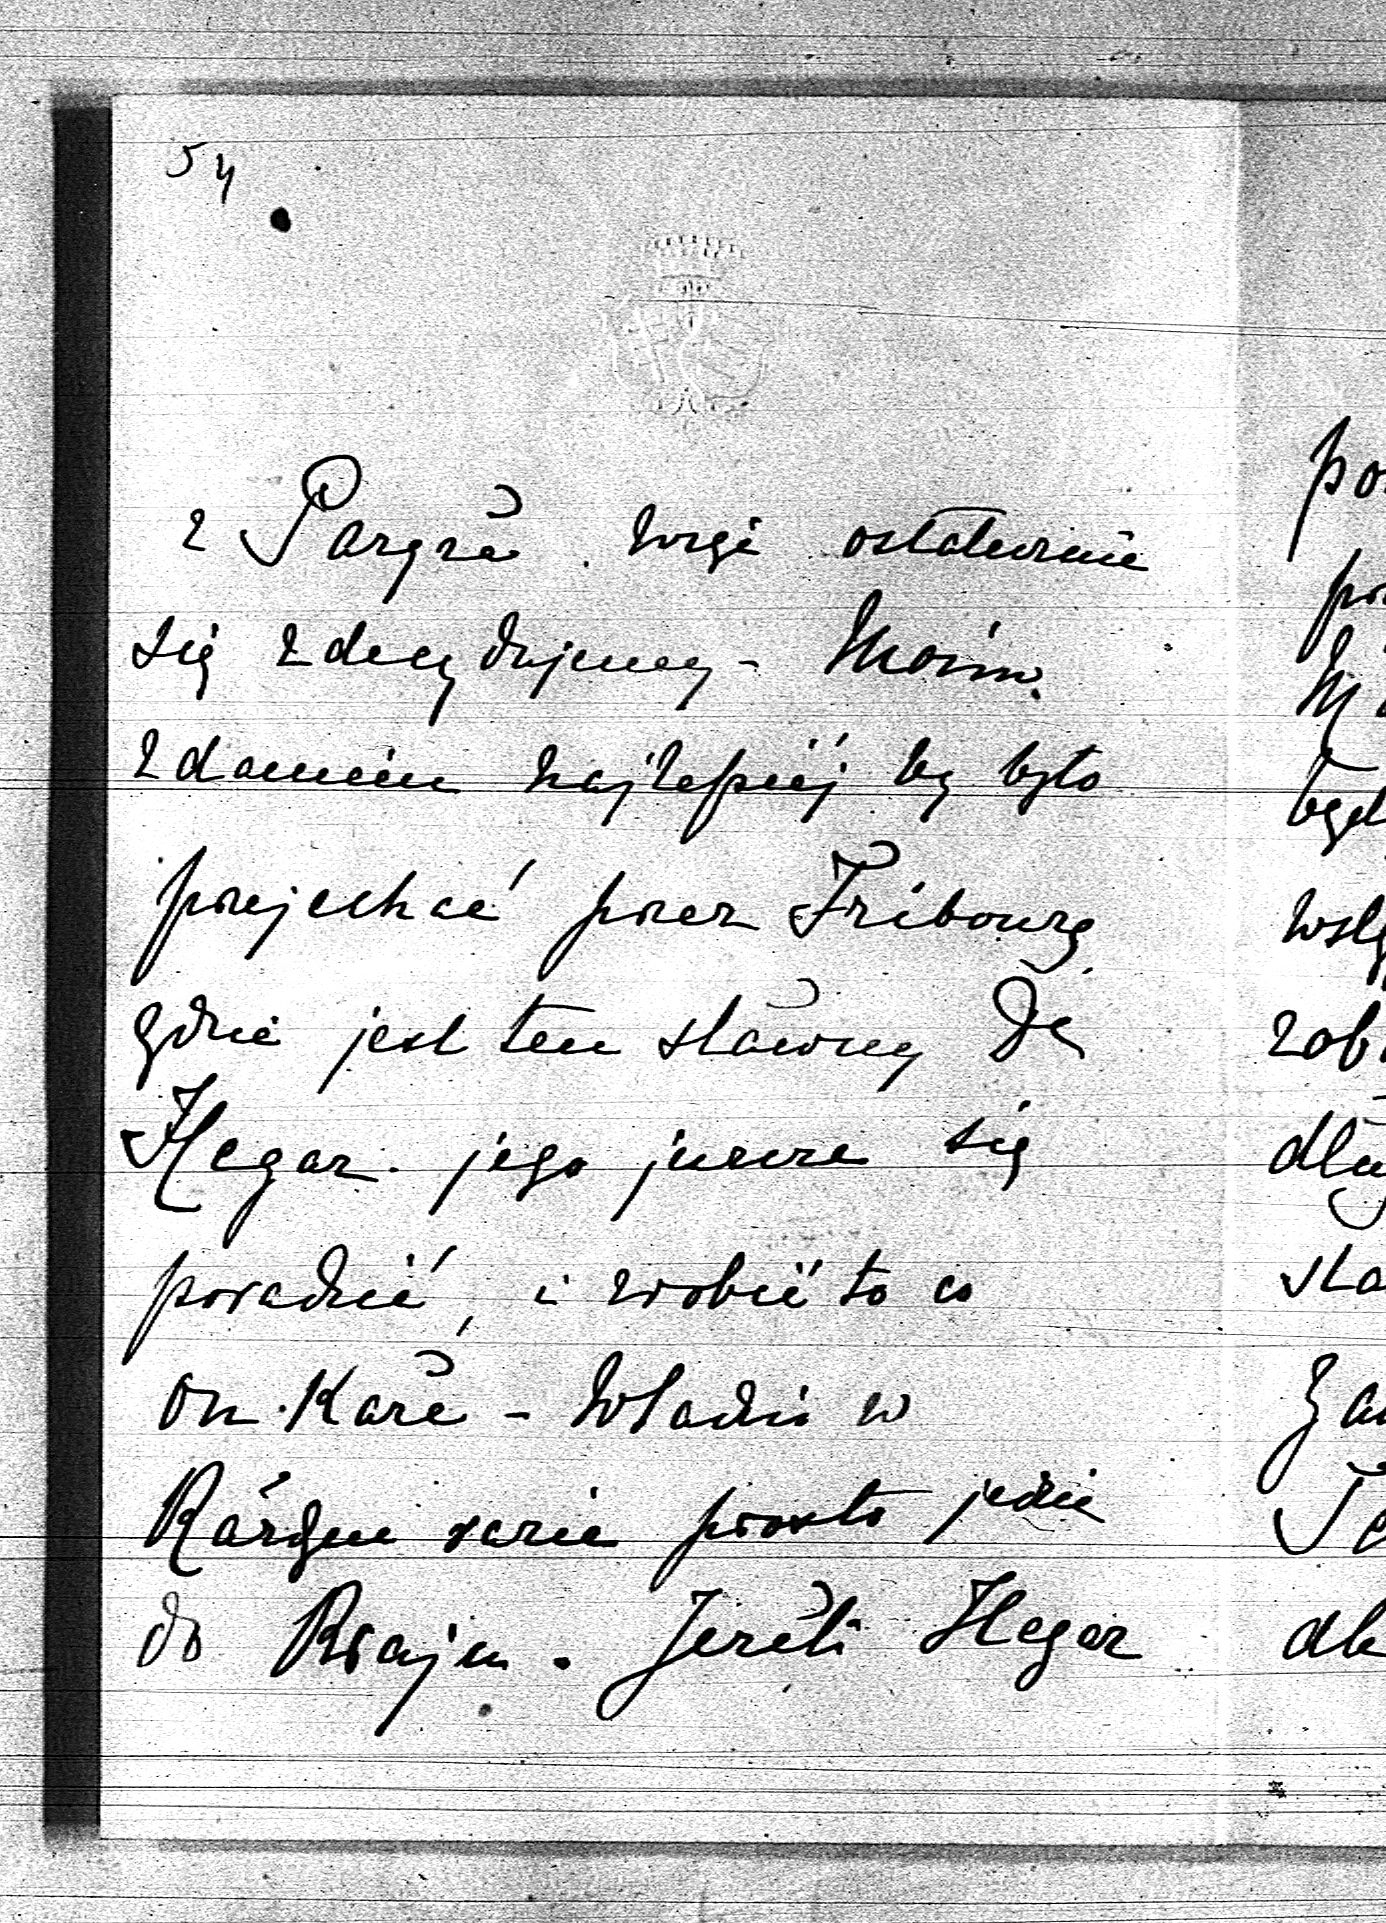 54
z Paryża więc ostatecznie
się zdecydujemy - Moim
zdaniem najlepiej by było
przejechać przez Fribourg
gdzie jest ten sławny Dr
Hegar. jego jeszcze się
poradzić, i zrobić to co
on każe - Władzio w
Każdym razie prosto jedzie
do Kraju. Jeżeli Hegar